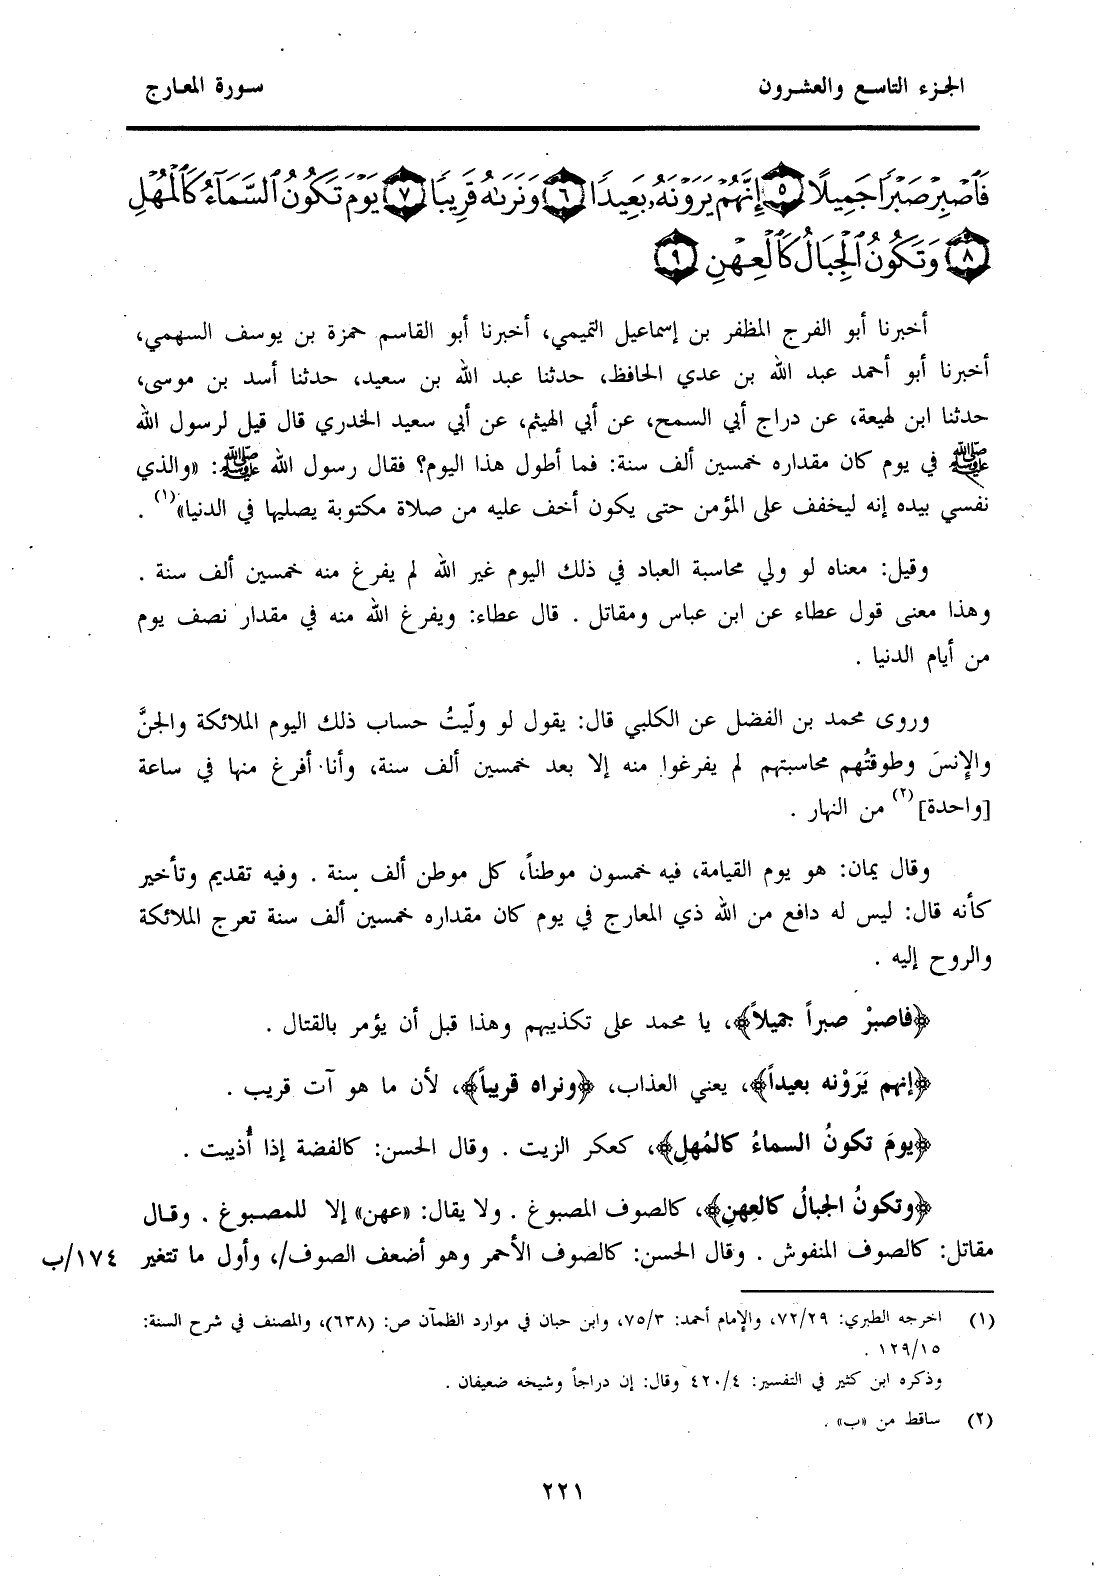 الجزء التاسع والعشرون
سورة المعارج
فَٱصْبِرْ صَبْرًا جَمِيلًا ٥ إِنَّهُمْ يَرَوْنَهُۥ بَعِيدًا ٦ وَنَرَىٰهُ قَرِيبًا ٧ يَوْمَ تَكُونُ ٱلسَّمَآءُ كَٱلْمُهْلِ
٨ وَتَكُونُ ٱلْجِبَالُ كَٱلْعِهْنِ ٩
أخبرنا أبو الفرج المظفر بن إسماعيل التميمي، أخبرنا أبو القاسم حمزة بن يوسف السهمي،
أخبرنا أبو أحمد عبد الله بن عدي الحافظ، حدثنا عبد الله بن سعيد، حدثنا أسد بن موسى،
حدثنا ابن لهيعة، عن دراج أبي السمح، عن أبي الهيثم، عن أبي سعيد الخدري قال قيل لرسول الله
ﷺ في يوم كان مقداره خمسين ألف سنة: فما أطول هذا اليوم؟ فقال رسول الله ﷺ: «والذي
نفسي بيده إنه ليخفف على المؤمن حتى يكون أخف عليه من صلاة مكتوبة يصليها في الدنيا»(١) .
وقيل: معناه لو ولي محاسبة العباد في ذلك اليوم غير الله لم يفرغ منه خمسين ألف سنة .
وهذا معنى قول عطاء عن ابن عباس ومقاتل . قال عطاء: ويفرغ الله منه في مقدار نصف يوم
من أيام الدنيا .
وروى محمد بن الفضل عن الكلبي قال: يقول لو ولّيتُ حساب ذلك اليوم الملائكة والجنَّ
والإنسَ وطوقتُهم محاسبتهم لم يفرغوا منه إلا بعد خمسين ألف سنة، وأنا أفرغ منها في ساعة
[واحدة](٢) من النهار .
وقال يمان: هو يوم القيامة، فيه خمسون موطناً، كل موطن ألف سنة . وفيه تقديم وتأخير
كأنه قال: ليس له دافع من الله ذي المعارج في يوم كان مقداره خمسين ألف سنة تعرج الملائكة
والروح إليه .
﴿فاصبرْ صبراً جميلاً﴾، يا محمد على تكذيبهم وهذا قبل أن يؤمر بالقتال .
﴿إنهم يَرَوْنه بعيداً﴾، يعني العذاب، ﴿ونراه قريباً﴾، لأن ما هو آت قريب .
﴿يومَ تكونُ السماءُ كالمُهلِ﴾، كعكر الزيت . وقال الحسن: كالفضة إذا أُذيبت .
﴿وتكونُ الجبالُ كالعِهنِ﴾، كالصوف المصبوغ . ولا يقال: «عهن» إلا للمصبوغ . وقال
مقاتل: كالصوف المنفوش . وقال الحسن: كالصوف الأحمر وهو أضعف الصوف/، وأول ما تتغير ١٧٤/ب
(١) اخرجه الطبري: ٧٢/٢٩، والإمام أحمد: ٧٥/٣، وابن حبان في موارد الظمآن ص: (٦٣٨)، والمصنف في شرح السنة:
١٢٩/١٥ .
وذكره ابن كثير في التفسير: ٤٢٠/٤ وقال: إن دراجاً وشيخه ضعيفان .
(٢) ساقط من «ب» .
٢٢١